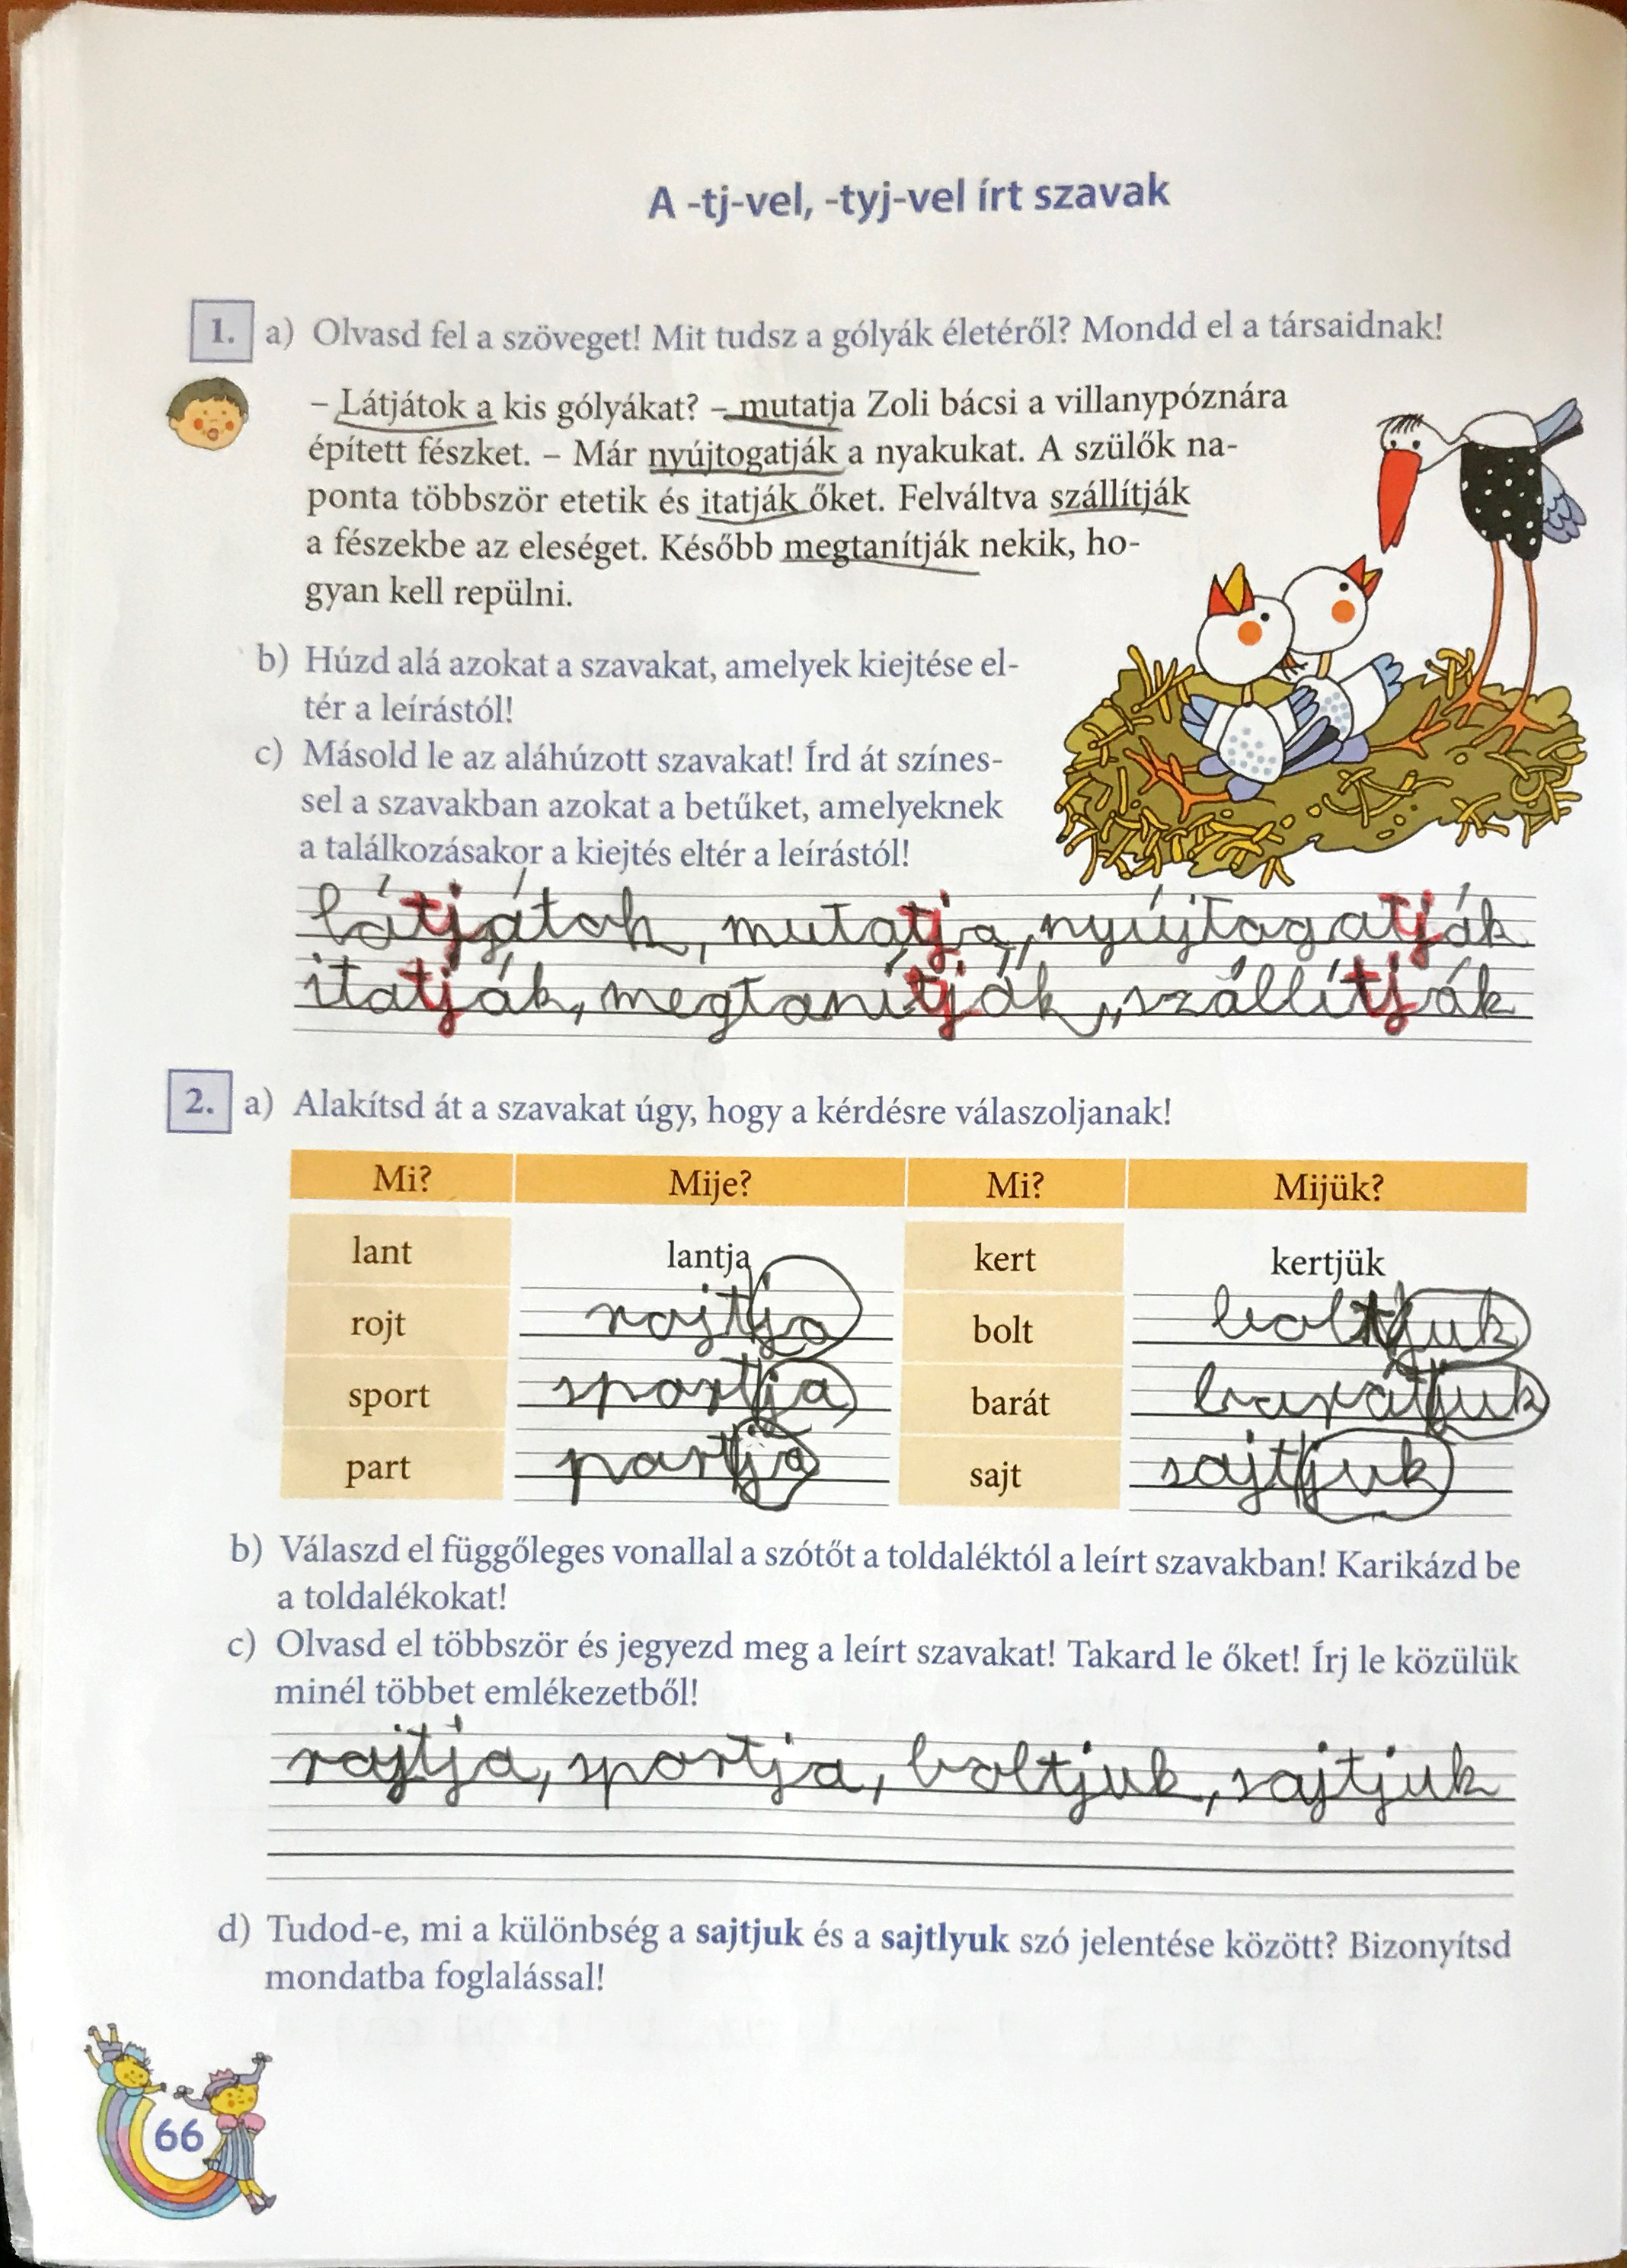 A -tj-vel, -tyj-vel írt szavak
1. a) Olvasd fel a szöveget! Mit tudsz a gólyák életéről? Mondd el a társaidnak!
– Látjátok a kis gólyákat? – mutatja Zoli bácsi a villanypóznára
épített fészket. – Már nyújtogatják a nyakukat. A szülők na-
ponta többször etetik és itatják őket. Felváltva szállítják
a fészekbe az eleséget. Később megtanítják nekik, ho-
gyan kell repülni.
b) Húzd alá azokat a szavakat, amelyek kiejtése el-
tér a leírástól!
c) Másold le az aláhúzott szavakat! Írd át színes-
sel a szavakban azokat a betűket, amelyeknek
a találkozásakor a kiejtés eltér a leírástól!
látjátok, mutatja, nyújtogatják
itatják, megtanítják, szállítják
2. a) Alakítsd át a szavakat úgy, hogy a kérdésre válaszoljanak!
Mi? Mije? Mi? Mijük?
lant lantja kert kertjük
rojt rojtja bolt boltjuk
sport sportja barát barátjuk
part partja sajt sajtjuk
b) Válaszd el függőleges vonallal a szótőt a toldaléktól a leírt szavakban! Karikázd be
a toldalékokat!
c) Olvasd el többször és jegyezd meg a leírt szavakat! Takard le őket! Írj le közülük
minél többet emlékezetből!
rojtja, sportja, boltjuk, sajtjuk
d) Tudod-e, mi a különbség a sajtjuk és a sajtlyuk szó jelentése között? Bizonyítsd
mondatba foglalással!
66